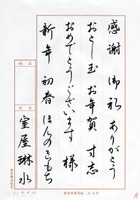 感謝 御礼 ありがとう
おとし玉 お年賀 寸志
おめでとうございます 様
新年 初春 ほんのきもち
氏名 室屋琳水